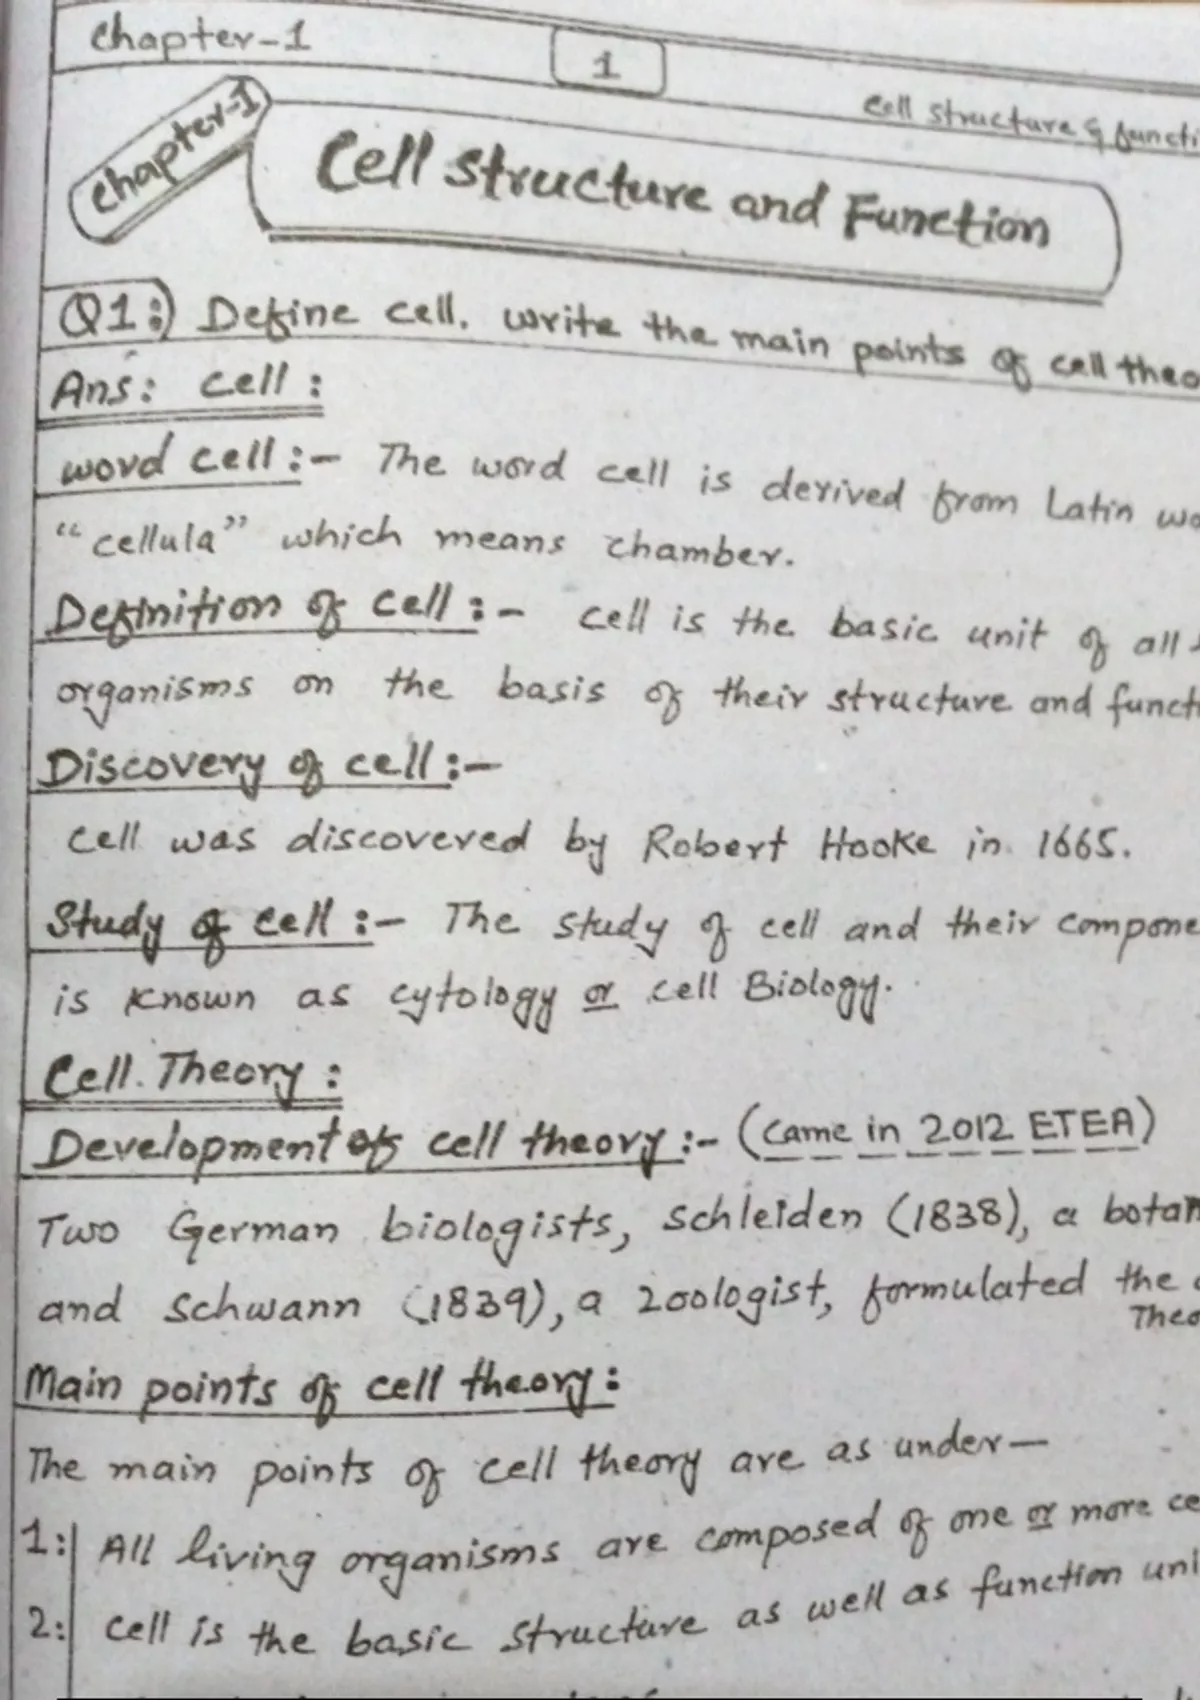 Chapter-1
1
Cell structure & functi
Chapter-I
Cell Structure and Function
Q1:) Define cell. write the main points of cell theo
Ans: cell:
word cell:- The word cell is derived from Latin wo
"cellula" which means chamber.
Definition of cell:- cell is the basic unit of all
organisms on the basis of their structure and functi
Discovery of cell:-
Cell was discovered by Robert Hooke in 1665.
Study of cell:- The study of cell and their compone
is known as cytology or cell Biology.
Cell Theory:
Development of cell theory:- (Came in 2012 ETEA)
Two German biologists, Schleiden (1838), a botan
and Schwann (1839), a zoologist, formulated the c
Theo
Main points of cell theory:
The main points of cell theory are as under—
1: All living organisms are composed of one or more ce
2: Cell is the basic structure as well as function uni